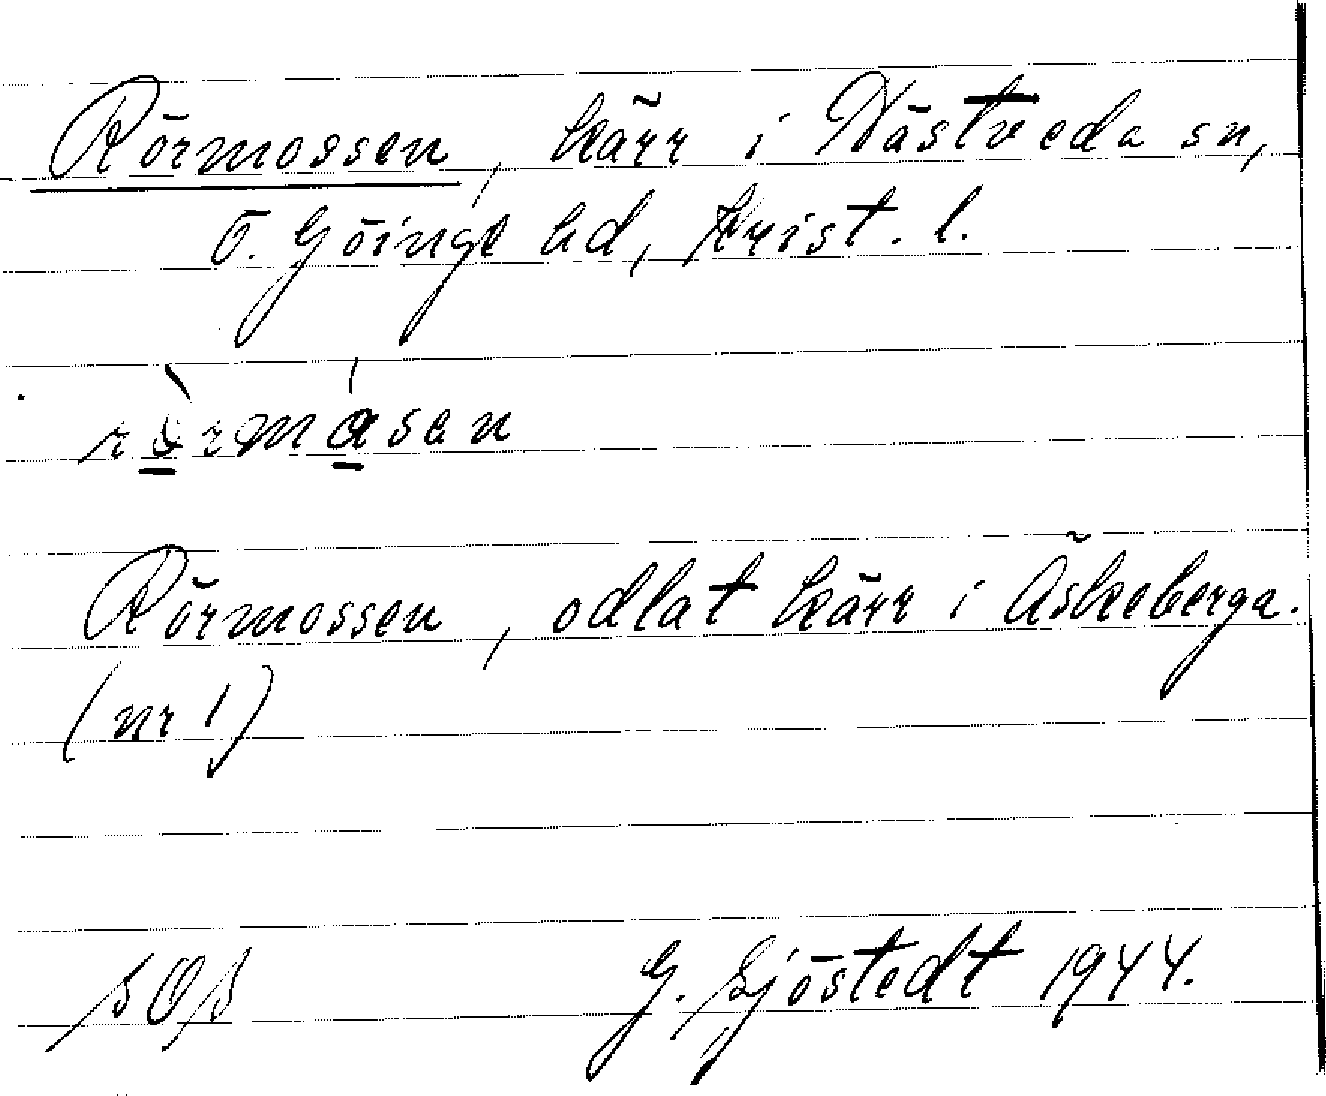 Rörmossen, kärr i Nästveda sn,
Ö. Göinge hd, Krist. l.
rö̀rmásen
Rörmossen, odlat kärr i Äskeberga.
(nr 1)
SOS G. Sjöstedt 1944.